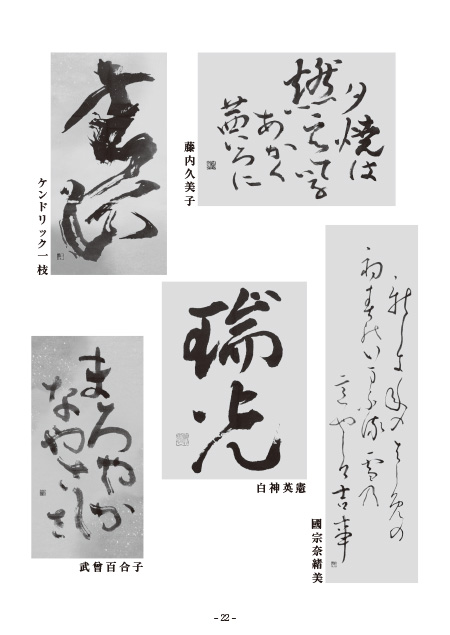 夕焼は
燃えている
あかく
茜いろに
藤内久美子
ケンドリック一枝
瑞光
白神英憲
年のはしめの
雪乃
いやしけ吉事
國宗奈緒美
まろやか
なやさしさ
武曾百合子
- 22 -